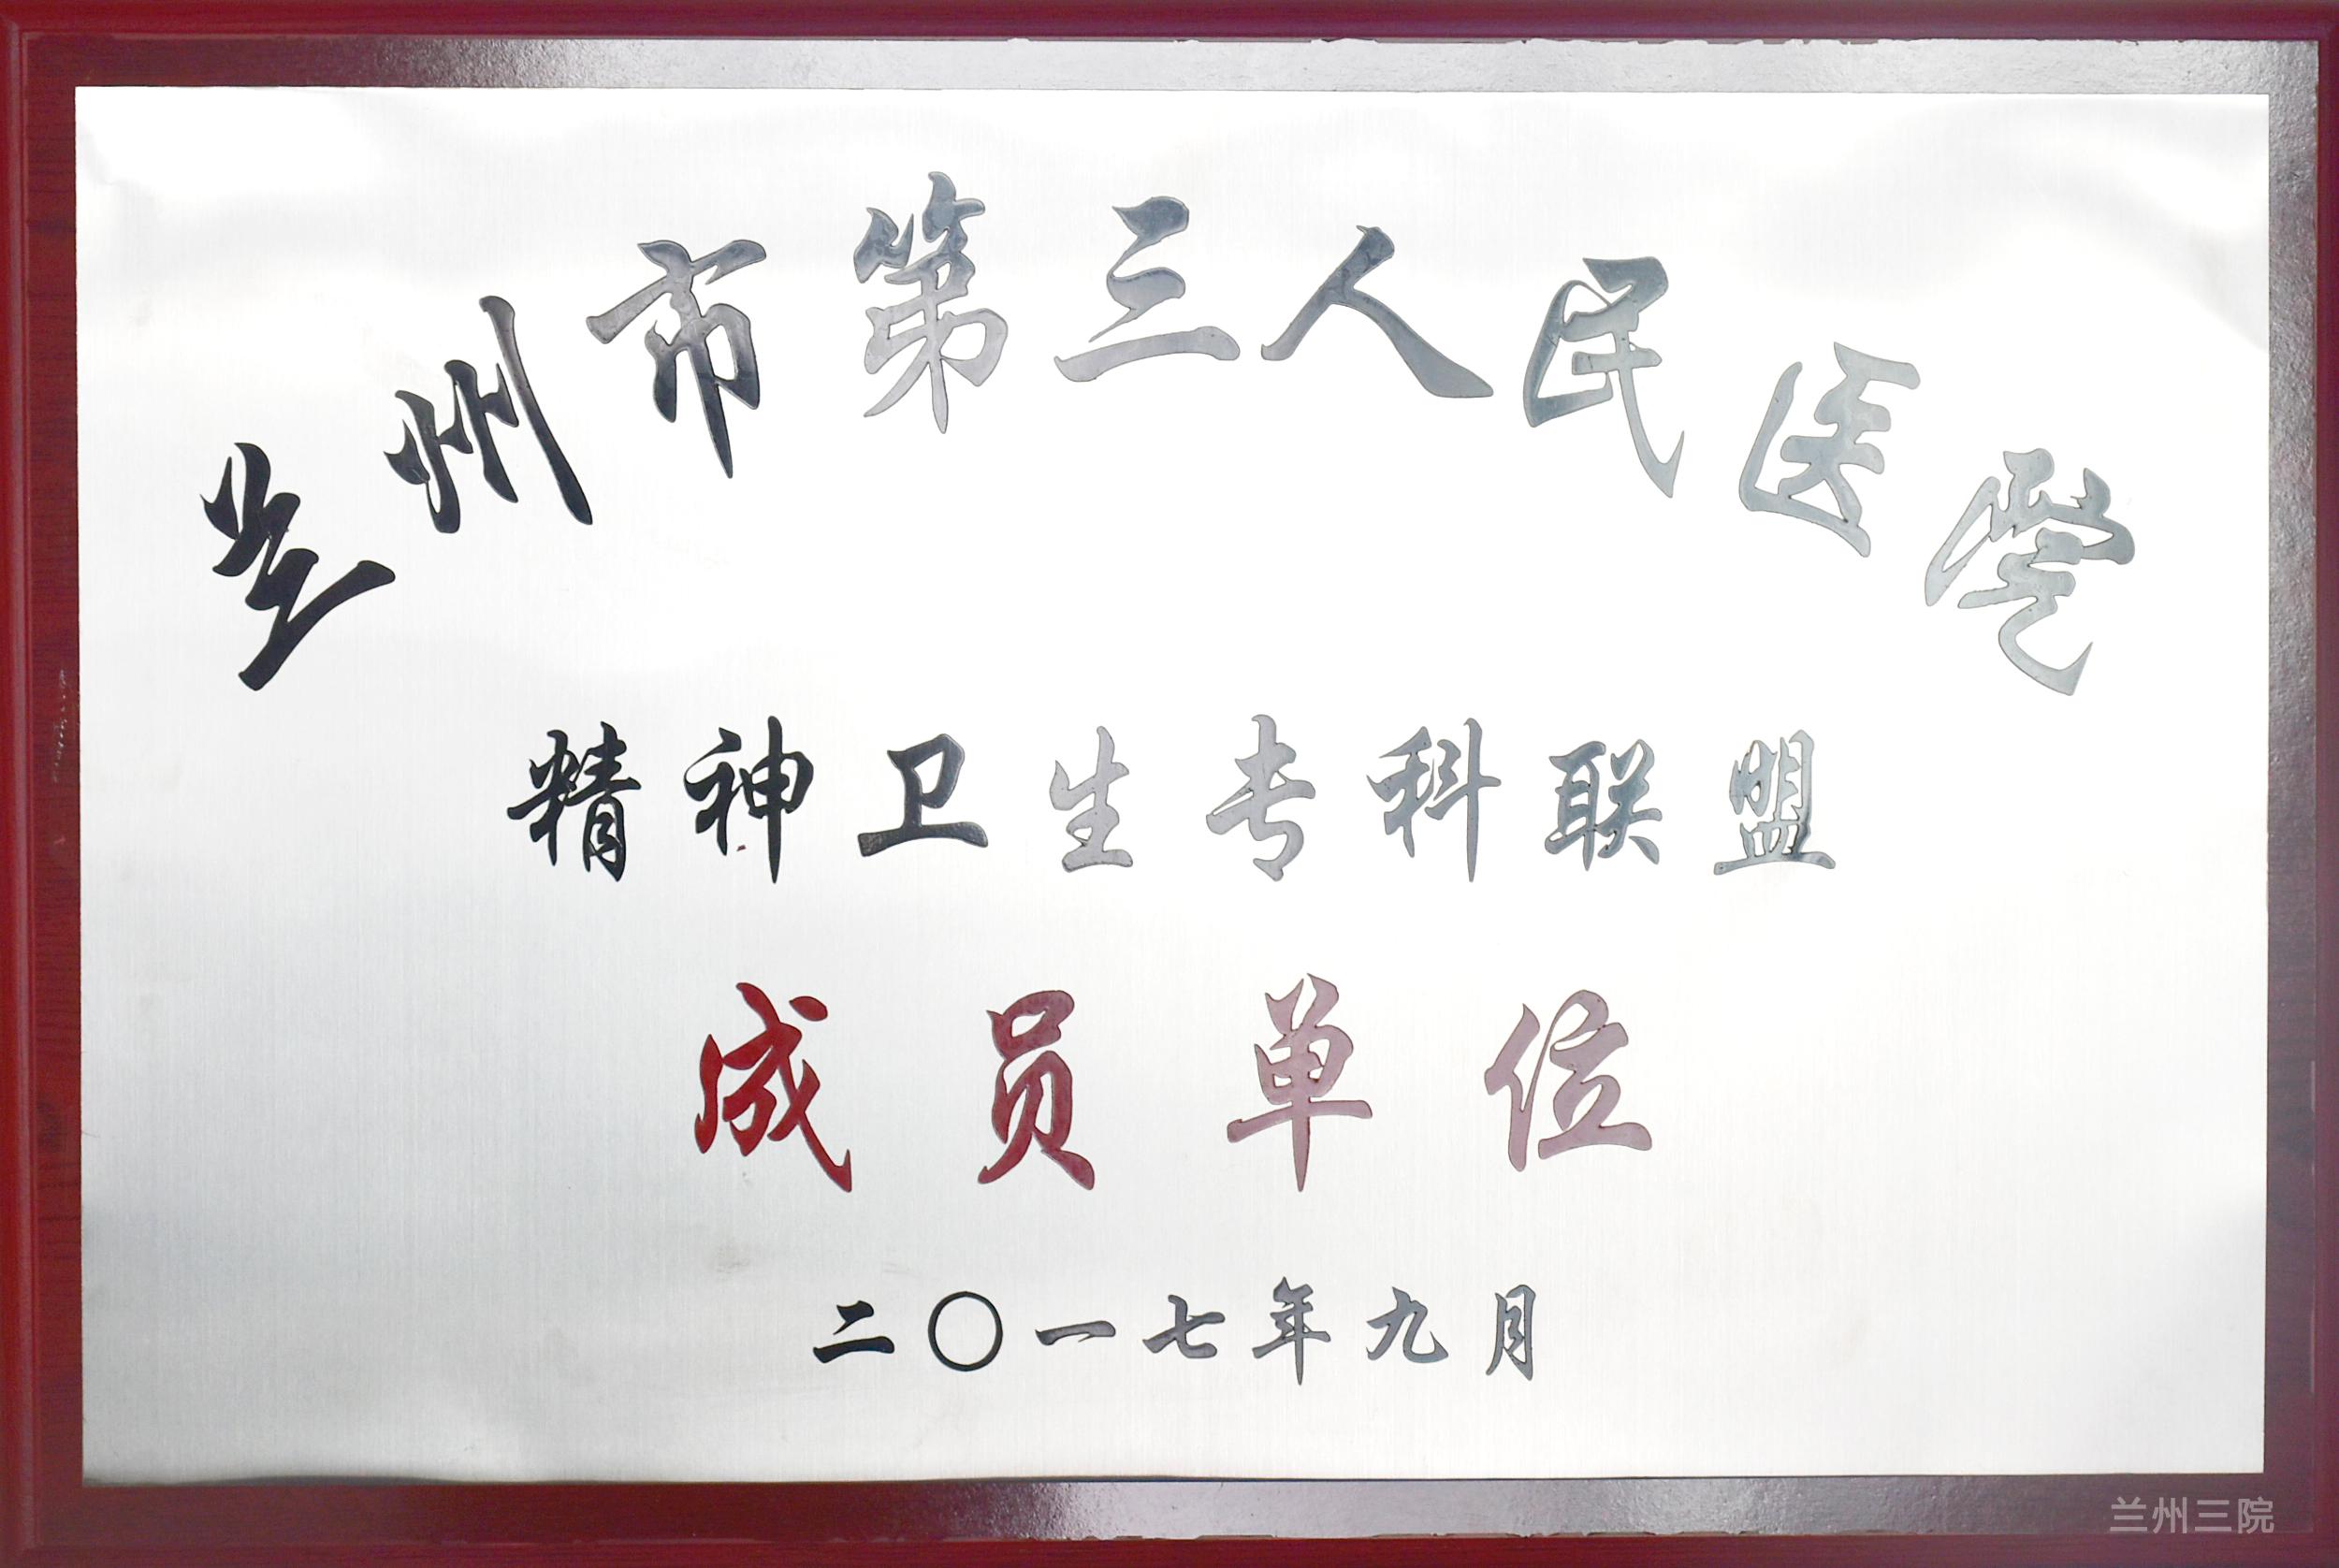 兰州市第三人民医院
精神卫生专科联盟
成员单位
二〇一七年九月
兰州三院